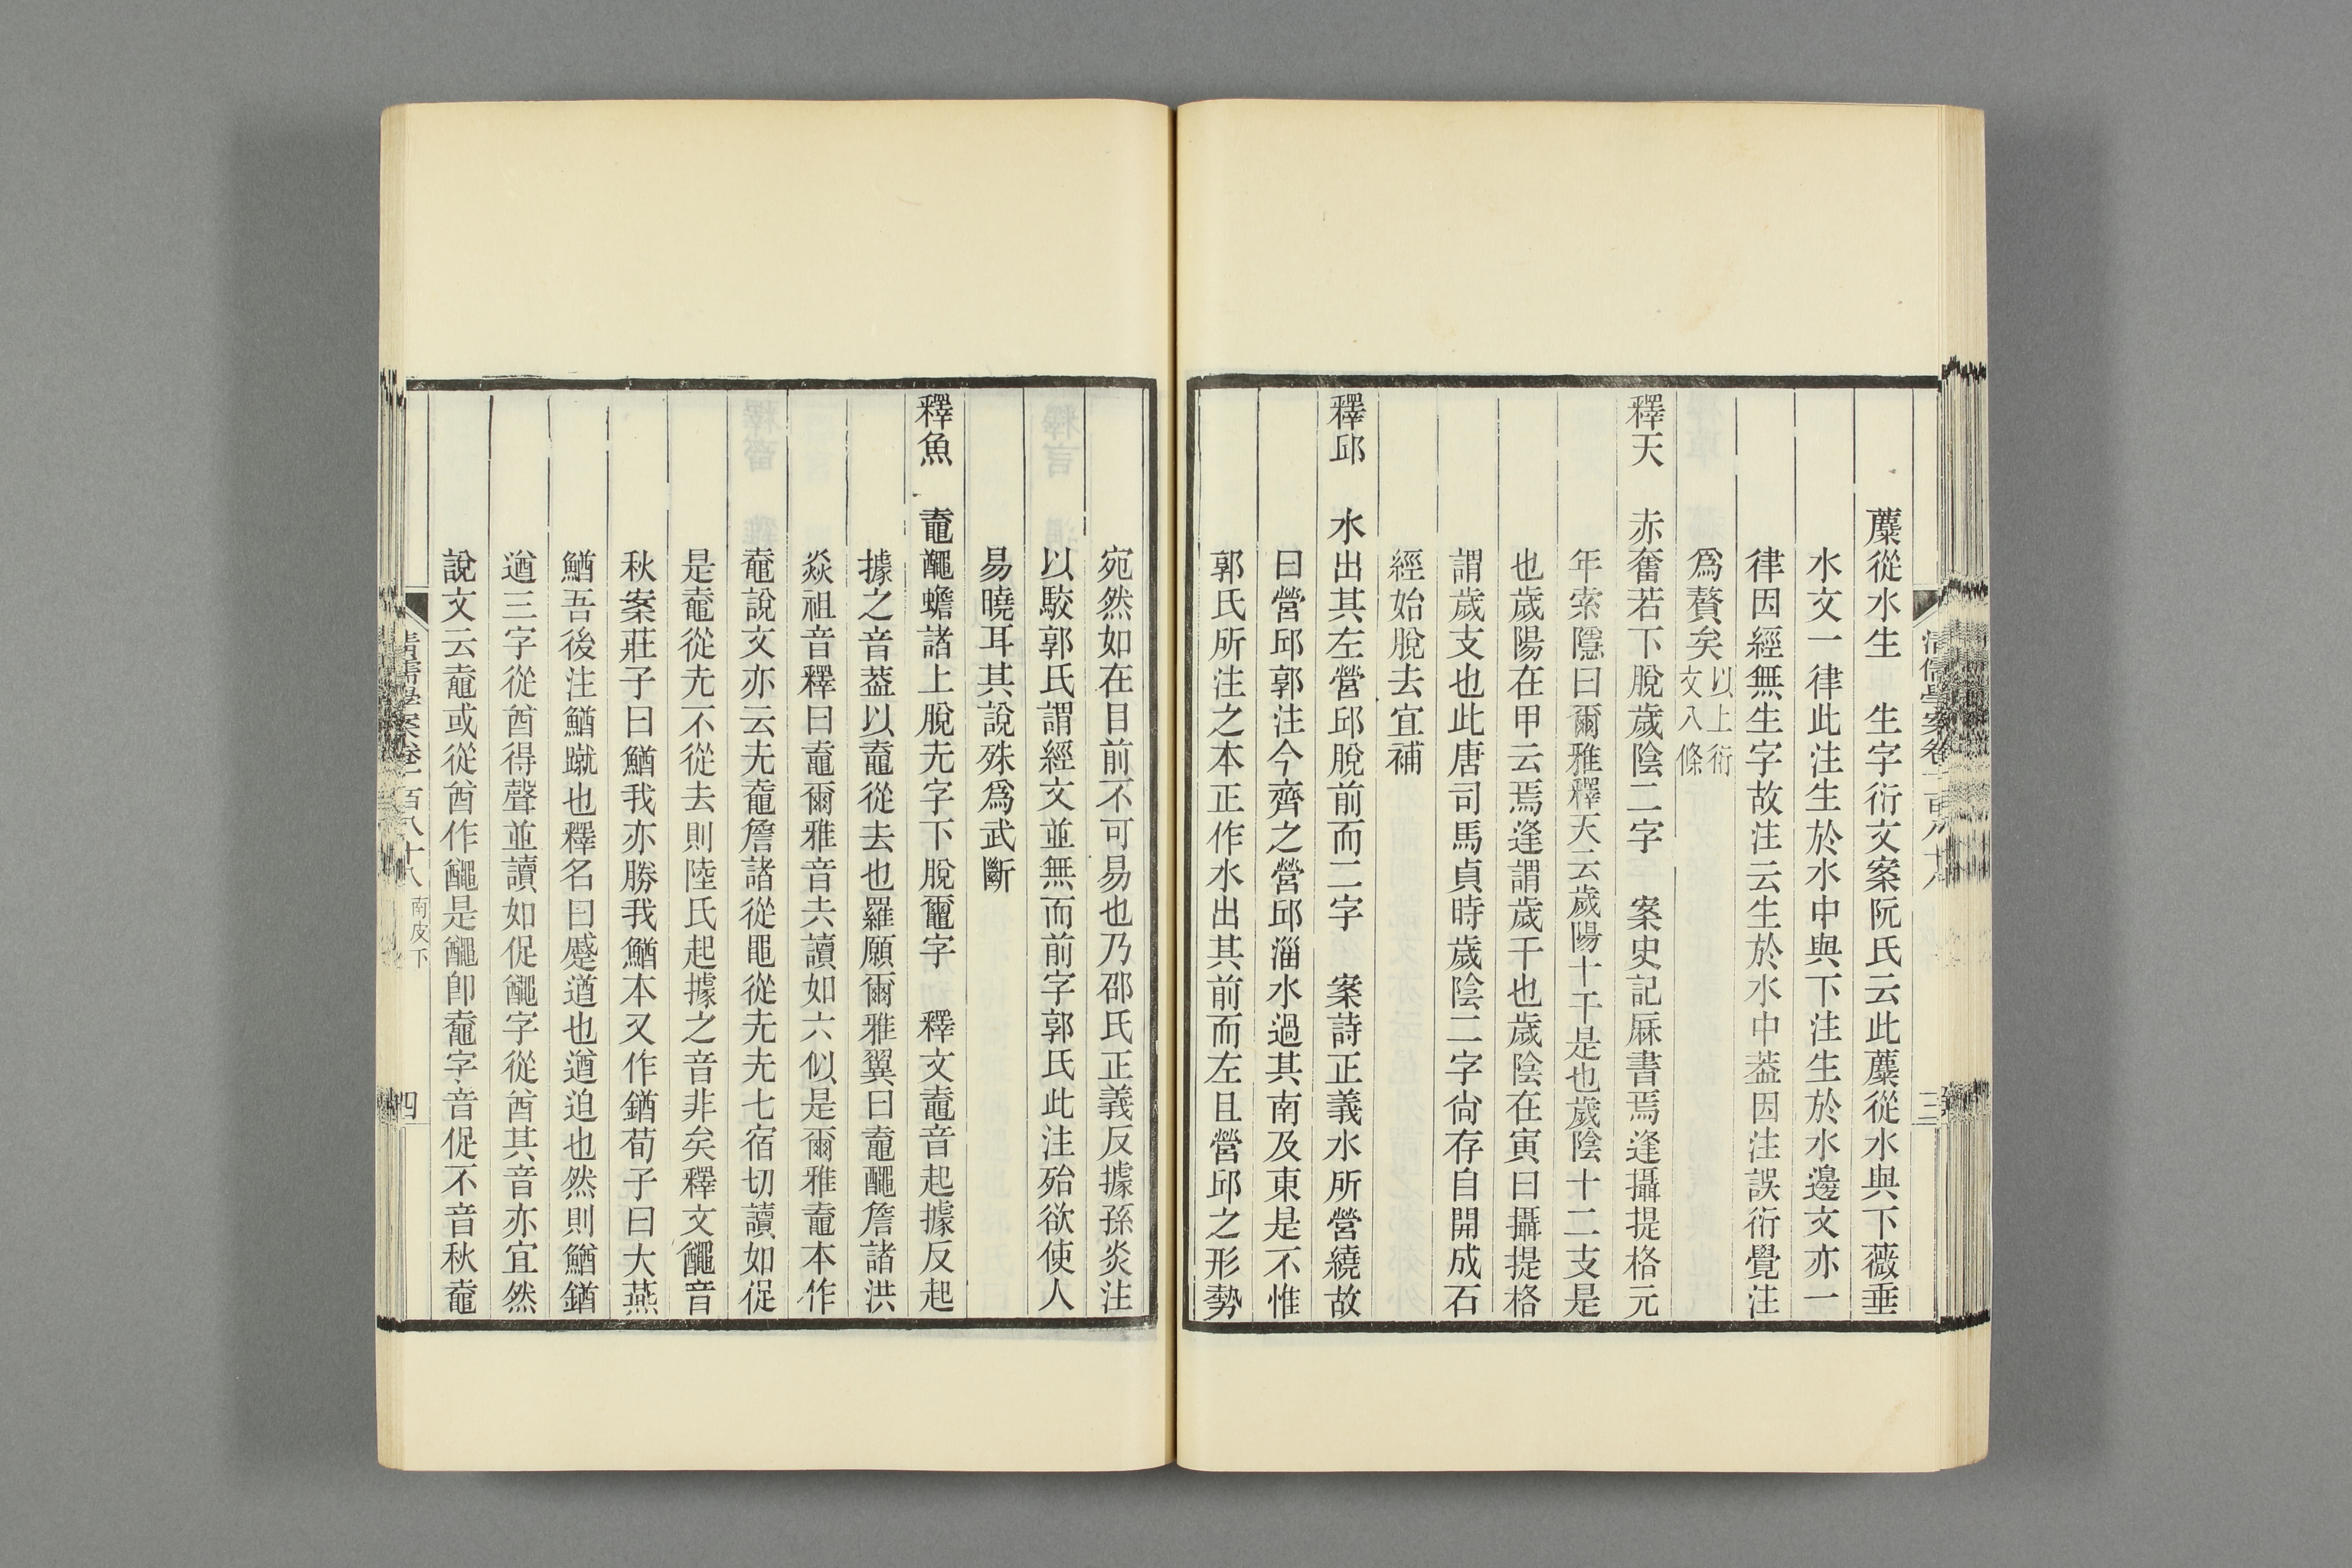 清儒學案卷一百八十八
三
蘪從水生　生字衍文案阮氏云此蘪從水與下薇垂
水文一律此注生於水中與下注生於水邊文亦一
律因經無生字故注云生於水中葢因注誤衍覺注
爲贅矣以上衍文八條
釋天　赤奮若下脫歲陰二字　案史記厤書焉逢攝提格元
年索隱曰爾雅釋天云歲陽十干是也歲陰十二支是
也歲陽在甲云焉逢謂歲干也歲陰在寅曰攝提格
謂歲支也此唐司馬貞時歲陰二字尙存自開成石
經始脫去宜補
釋邱　水出其左營邱脫前而二字　案詩正義水所營繞故
曰營邱郭注今齊之營邱淄水過其南及東是不惟
郭氏所注之本正作水出其前而左且營邱之形勢
宛然如在目前不可易也乃邵氏正義反據孫炎注
以駮郭氏謂經文並無而前字郭氏此注殆欲使人
易曉耳其說殊爲武斷
釋魚　鼀𪓰蟾諸上脫圥字下脫鼀字　釋文鼀音起據反起
據之音葢以鼀從去也羅願爾雅翼曰鼀𪓰詹諸洪
焱祖音釋曰鼀爾雅音去讀如六似是爾雅鼀本作
鼀說文亦云圥鼀詹諸從黽從圥圥七宿切讀如促
是鼀從圥不從去則陸氏起據之音非矣釋文𪓰音
秋案莊子曰鰌我亦勝我鰌本又作䠓荀子曰大燕
鰌吾後注鰌蹴也釋名曰蹙遒也遒迫也然則鰌䠓
遒三字從酋得聲並讀如促𪓰字從酋其音亦宜然
說文云鼀或從酋作𪓰是𪓰卽鼀字音促不音秋鼀
清儒學案卷一百八十八　南皮下
四